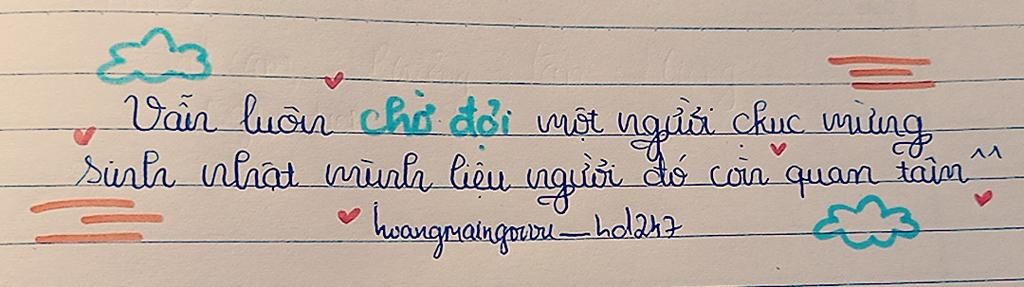 Vẫn luôn chờ đợi một người chuc mừng
sinh nhật mình liệu người đó còn quan tâm ^^